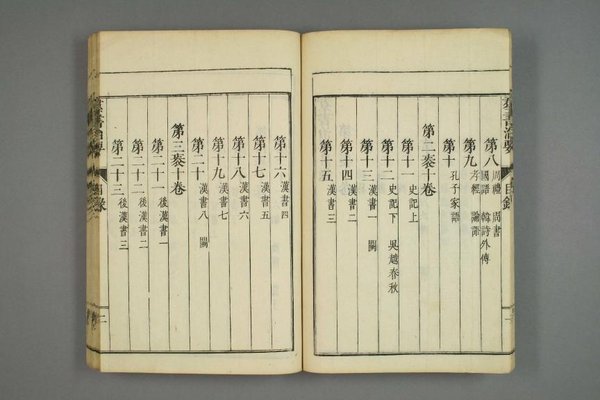 羣書治要 目錄
第八 周禮 周書
國語 韓詩外傳
第九 孝經 論語
第十 孔子家語
第二袠十卷
第十一 史記上
第十二 史記下 吳越春秋
第十三 漢書一 闕
第十四 漢書二
第十五 漢書三
第十六 漢書四
第十七 漢書五
第十八 漢書六
第十九 漢書七
第二十 漢書八 闕
第三袠十卷
第二十一 後漢書一
第二十二 後漢書二
第二十三 後漢書三
羣書治要 目錄 二